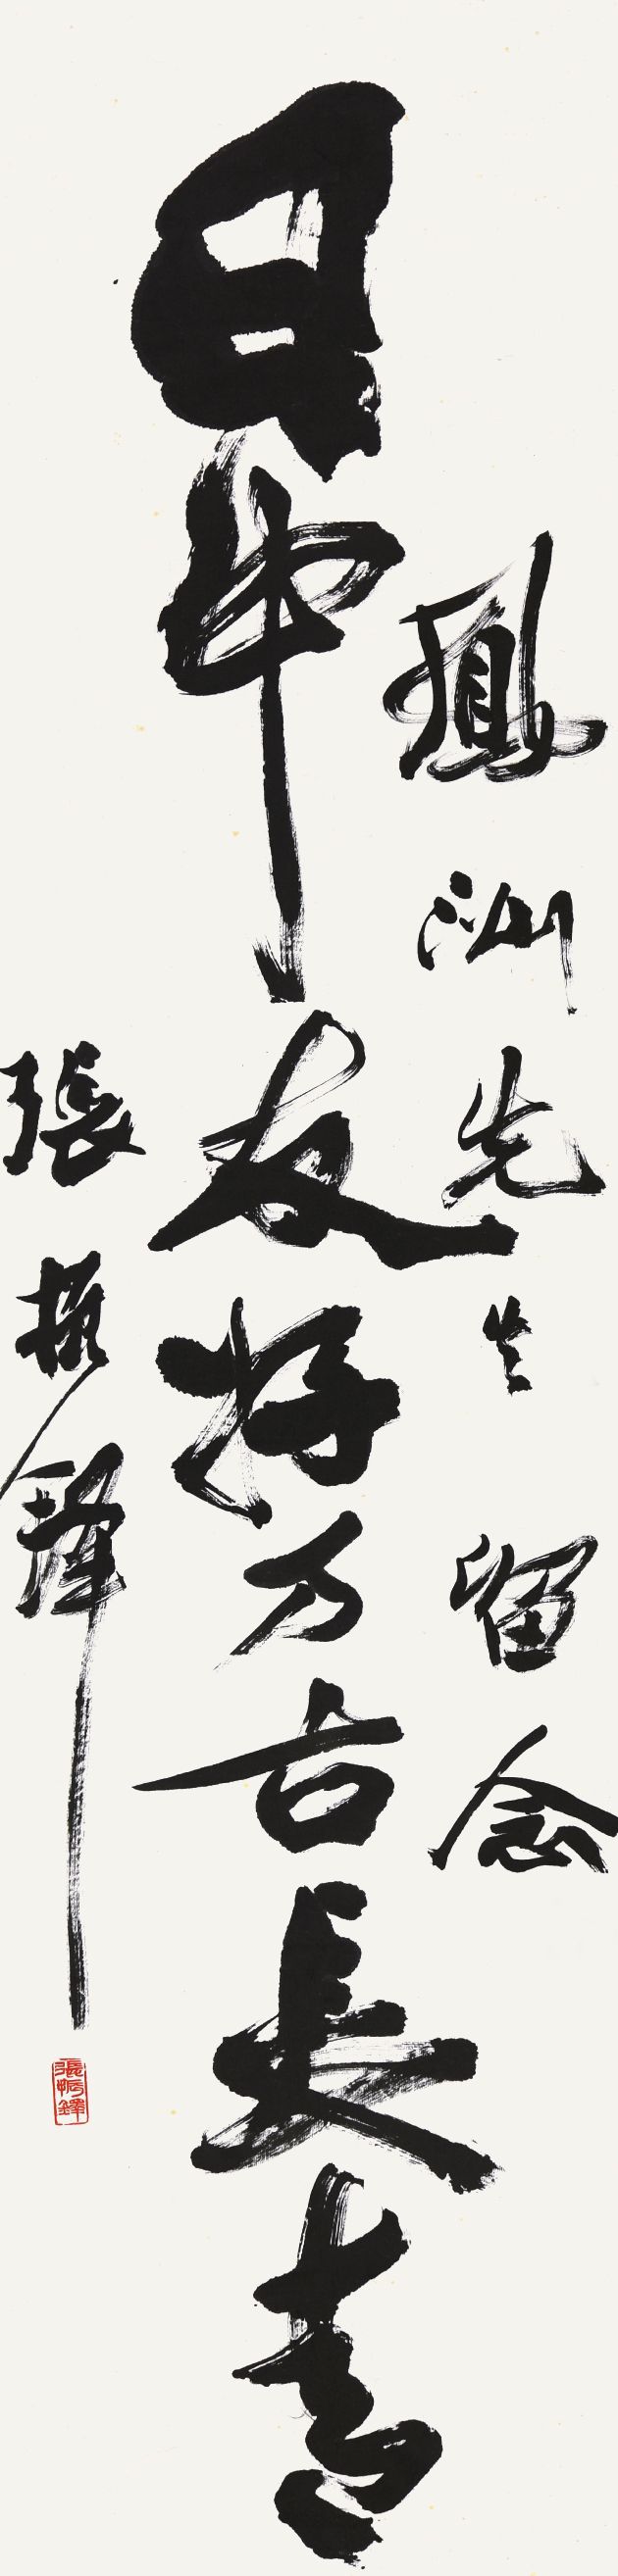 鳳洲先生留念
日中友好万古長青
張振鐸
張振鐸